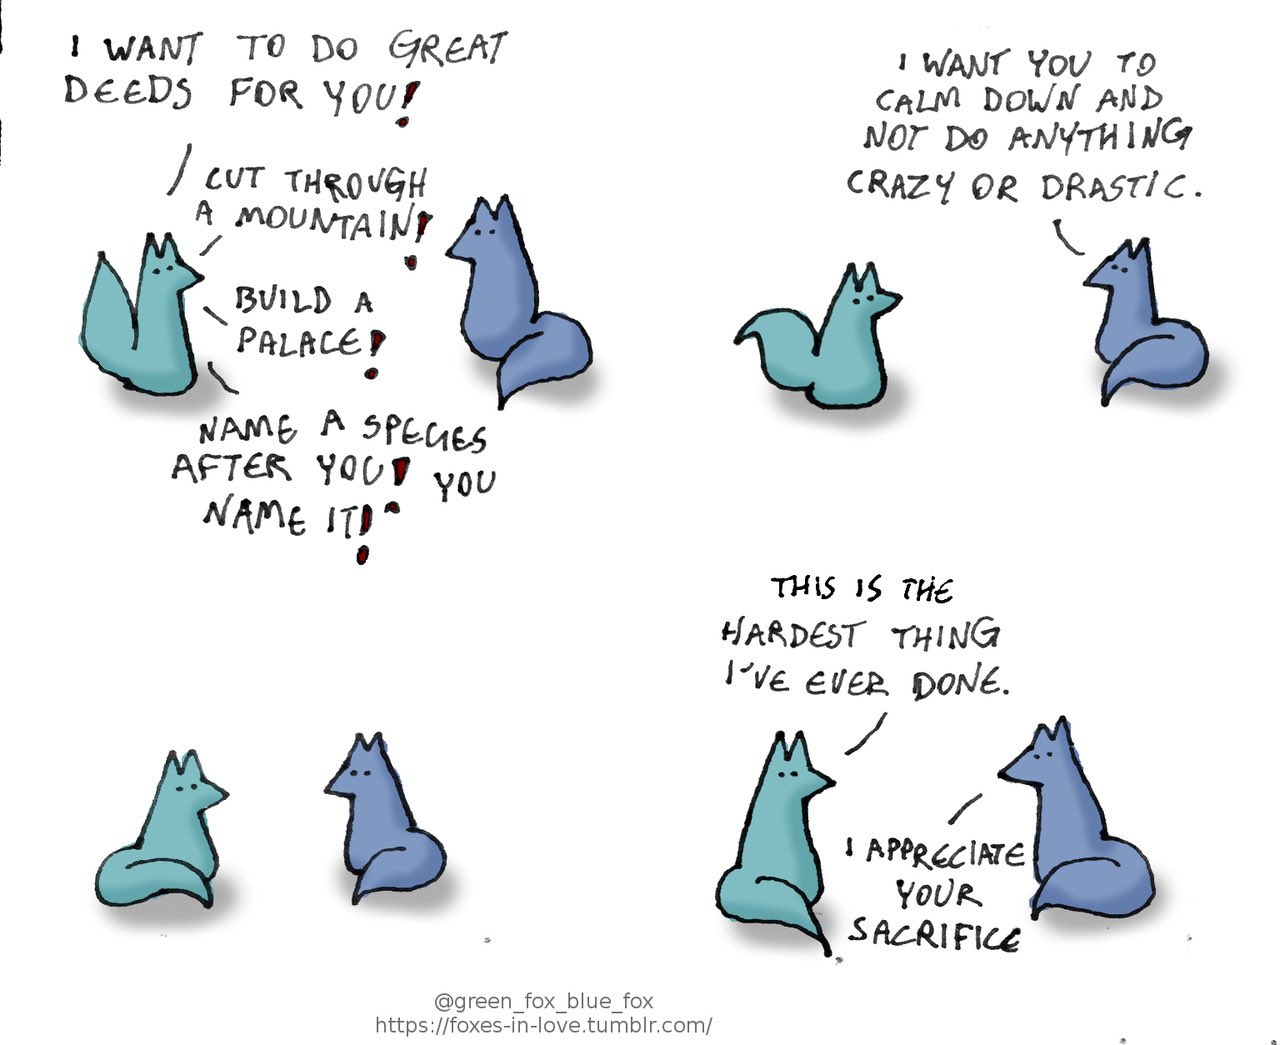 I WANT TO DO GREAT
DEEDS FOR YOU!
CUT THROUGH
A MOUNTAIN!
BUILD A
PALACE!
NAME A SPECIES
AFTER YOU! YOU
NAME IT!
I WANT YOU TO
CALM DOWN AND
NOT DO ANYTHING
CRAZY OR DRASTIC.
THIS IS THE
HARDEST THING
I'VE EVER DONE.
I APPRECIATE
YOUR
SACRIFICE
@green_fox_blue_fox
https://foxes-in-love.tumblr.com/